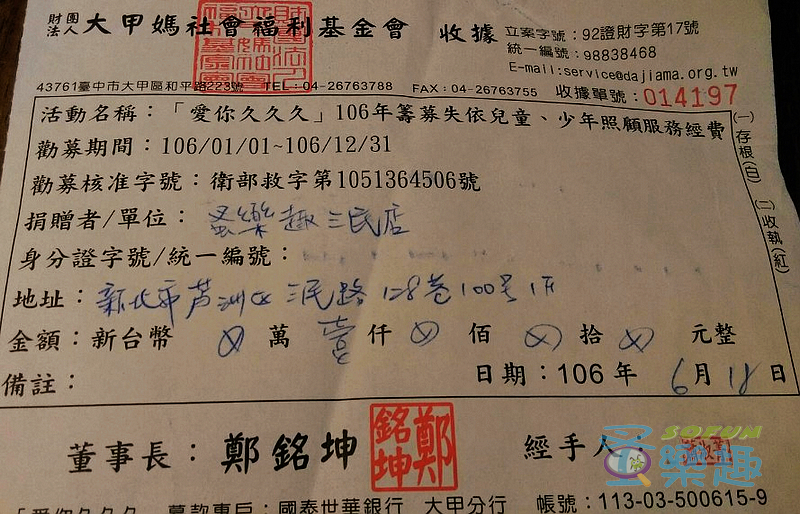 財團法人 大甲媽社會福利基金會 收據
立案字號：92證財字第17號
統一編號：98838468
E-mail:service@dajiama.org.tw
43761臺中市大甲區和平路223號 TEL：04-26763788 FAX：04-26763755 收據單號：014197
活動名稱：「愛你久久久」106年籌募失依兒童、少年照顧服務經費
勸募期間：106/01/01~106/12/31
勸募核准字號：衛部救字第1051364506號
捐贈者/單位：蛋樂趣三民店
身分證字號/統一編號：
地址：新北市芦洲区三民路128巷100号1F
金額：新台幣 萬 壹 仟 佰 拾 元整
備註：
日期：106年 6月 18日
(一)存根(白) (二)收執(紅)
董事長：鄭銘坤
鄭銘坤
經手人：
SOFUN
蛋樂趣
「愛你久久久 募款專戶：國泰世華銀行 大甲分行 帳號：113-03-500615-9